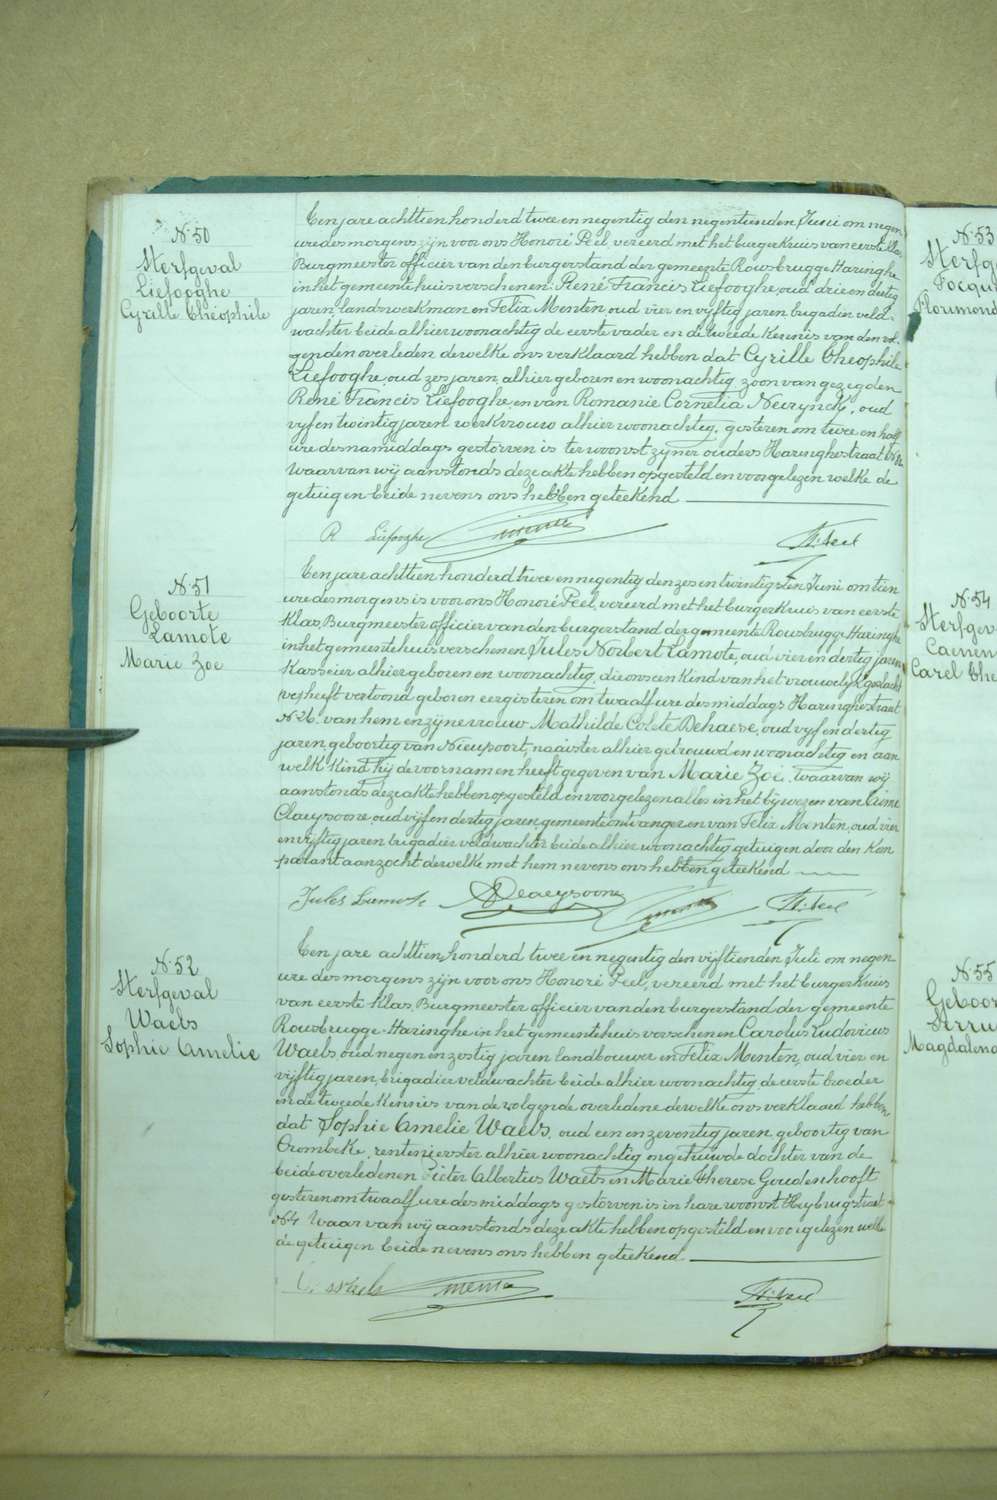 N. 50
Sterfgeval
Liefooghe
Cyrille Theophile
Ten jare achttien honderd twee en negentig den negentienden Juni om negen
ure des morgens zijn voor ons Honoré Peel, vereerd met het burgerkruis van eerste klas
Burgmeester officier van den burgerstand der gemeente Rousbrugge Haringhe
in het gemeentehuis verschenen René Francis Liefooghe, oud drie en dertig
jaren landswerkman en Felix Menten oud vier en vijftig jaren brigadier veld-
wachter beide alhier woonachtig de eerste vader en de tweede kennis van den vol-
genden overleden dewelke ons verklaard hebben dat Cyrille Theophile
Liefooghe, oud zes jaren, alhier geboren en woonachtig zoon van gezegden
René Francis Liefooghe, en van Romanie Cornelia Neirynck, oud
vijf en twintig jaren werkvrouw alhier woonachtig, gisteren om twee en half
ure des namiddags gestorven is ter woonst zijner ouders Haringhestraat
Waarvan wij aanstonds deze akte hebben opgesteld en voorgelezen welke de
getuigen beide nevens ons hebben geteekend
R Liefooghe Menten H. Peel
N. 51
Geboorte
Lamote
Marie Zoe
Ten jare achttien honderd twee en negentig den zes en twintigsten Juni om tien
ure des morgens is voor ons Honoré Peel, vereerd met het burgerkruis van eerste
klas, Burgmeester officier van den burgerstand der gemeente Rousbrugge Haringhe
in het gemeentehuis verschenen Jules Norbert Lamote, oud vier en dertig jaren
kasseier alhier geboren en woonachtig, die ons een kind van het vrouwelijk geslacht
heeft vertoond geboren eergisteren om twaalf ure des middags Haringhestraat
N. 26. van hem en zijne vrouw Mathilde Colete Dehaese, oud vijf en dertig
jaren, geboortig van Nieupoort, naaister alhier getrouwd en woonachtig en aan
welk kind hij de voornamen heeft gegeven van Marie Zoë, waarvan wij
aanstonds deze akte hebben opgesteld en voorgelezen alles in het bijwezen van
Claeysoone, oud vijf en dertig jaren, gemeente ontvanger en van Felix Menten, oud vier
en vijftig jaren brigadier veldwachter beide alhier woonachtig getuigen door den kom
parant aanzocht dewelke met hem nevens ons hebben geteekend
Jules Lamote Claeysoone Menten H. Peel
N. 52
Sterfgeval
Waels
Sophie Amelie
Ten jare achttien honderd twee en negentig den vijftienden Juli om negen
ure des morgens zijn voor ons Honoré Peel, vereerd met het burgerkruis
van eerste klas, Burgmeester officier van den burgerstand der gemeente
Rousbrugge-Haringhe in het gemeentehuis verschenen Carolus Ludovicus
Waels oud negen en zestig jaren landbouwer en Felix Menten, oud vier en
vijftig jaren, brigadier veldwachter beide alhier woonachtig de eerste broeder
en de tweede kennis van de volgende overledene dewelke ons verklaard hebben
dat Sophie Amelie Waels, oud een en zeventig jaren, geboortig van
Crombeke, rentenierster alhier woonachtig ongehuwde dochter van de
beide overledenen Pieter Albertus Waels en Marie Therese Goudenhooft
gisteren om twaalf ure des middags gestorven is in hare woonst Heybrugstraat
N. 4 Waarvan wij aanstonds deze akte hebben opgesteld en voorgelezen welke
de getuigen beide nevens ons hebben geteekend
C. Waels Menten H. Peel
N. 53
N. 54
N. 55